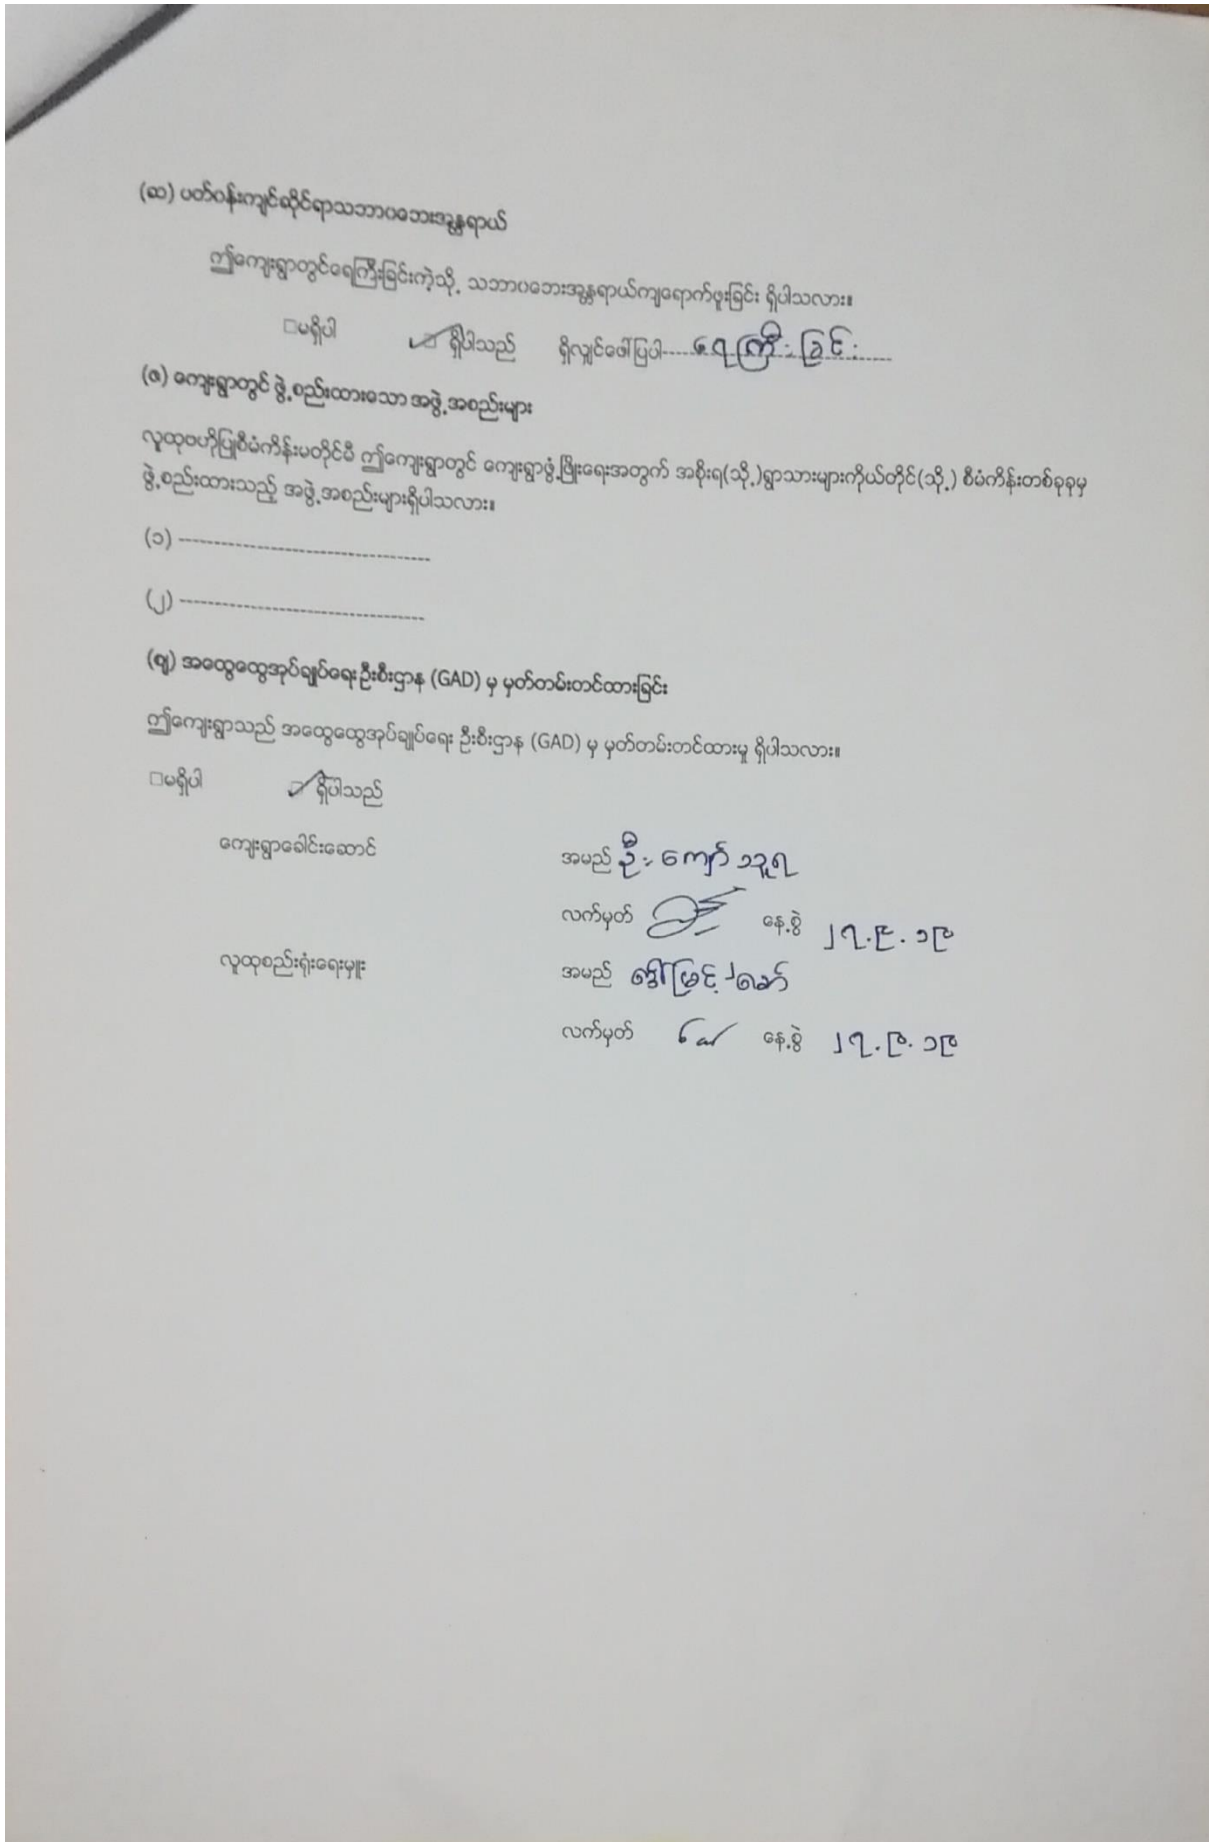 (ဆ) ပတ်ဝန်းကျင်ဆိုင်ရာသဘာဝဘေးအန္တရာယ်
ဤကျေးရွာတွင်ရေကြီးခြင်းကဲ့သို့ သဘာဝဘေးအန္တရာယ်ကျရောက်ဖူးခြင်း ရှိပါသလား။
□မရှိပါ ☑ ရှိပါသည် ရှိလျှင်ဖေါ်ပြပါ------ရေကြီးခြင်း------
(ဇ) ကျေးရွာတွင် ဖွဲ့စည်းထားသော အဖွဲ့အစည်းများ
လူထုဗဟိုပြုစီမံကိန်းမတိုင်မီ ဤကျေးရွာတွင် ကျေးရွာဖွံ့ဖြိုးရေးအတွက် အစိုးရ(သို့)ရွာသားများကိုယ်တိုင်(သို့) စီမံကိန်းတစ်ခုခုမှ
ဖွဲ့စည်းထားသည့် အဖွဲ့အစည်းများရှိပါသလား။
(၁) -----------------------------------
(၂) -----------------------------------
(ဈ) အထွေထွေအုပ်ချုပ်ရေးဦးစီးဌာန (GAD) မှ မှတ်တမ်းတင်ထားခြင်း
ဤကျေးရွာသည် အထွေထွေအုပ်ချုပ်ရေး ဦးစီးဌာန (GAD) မှ မှတ်တမ်းတင်ထားမှု ရှိပါသလား။
□မရှိပါ ☑ ရှိပါသည်
ကျေးရွာခေါင်းဆောင် အမည် ဦးကျော်သူရ
လက်မှတ် နေ့စွဲ ၂၇.၉.၁၉
လူထုစည်းရုံးရေးမှူး အမည် ဒေါ်မြင့်
လက်မှတ် နေ့စွဲ ၂၇.၉.၁၉